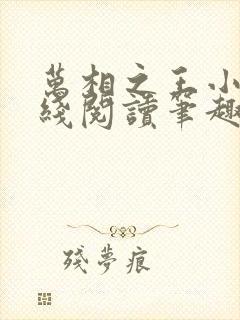 萬相之王小
綫閱讀筆趣
殘夢痕